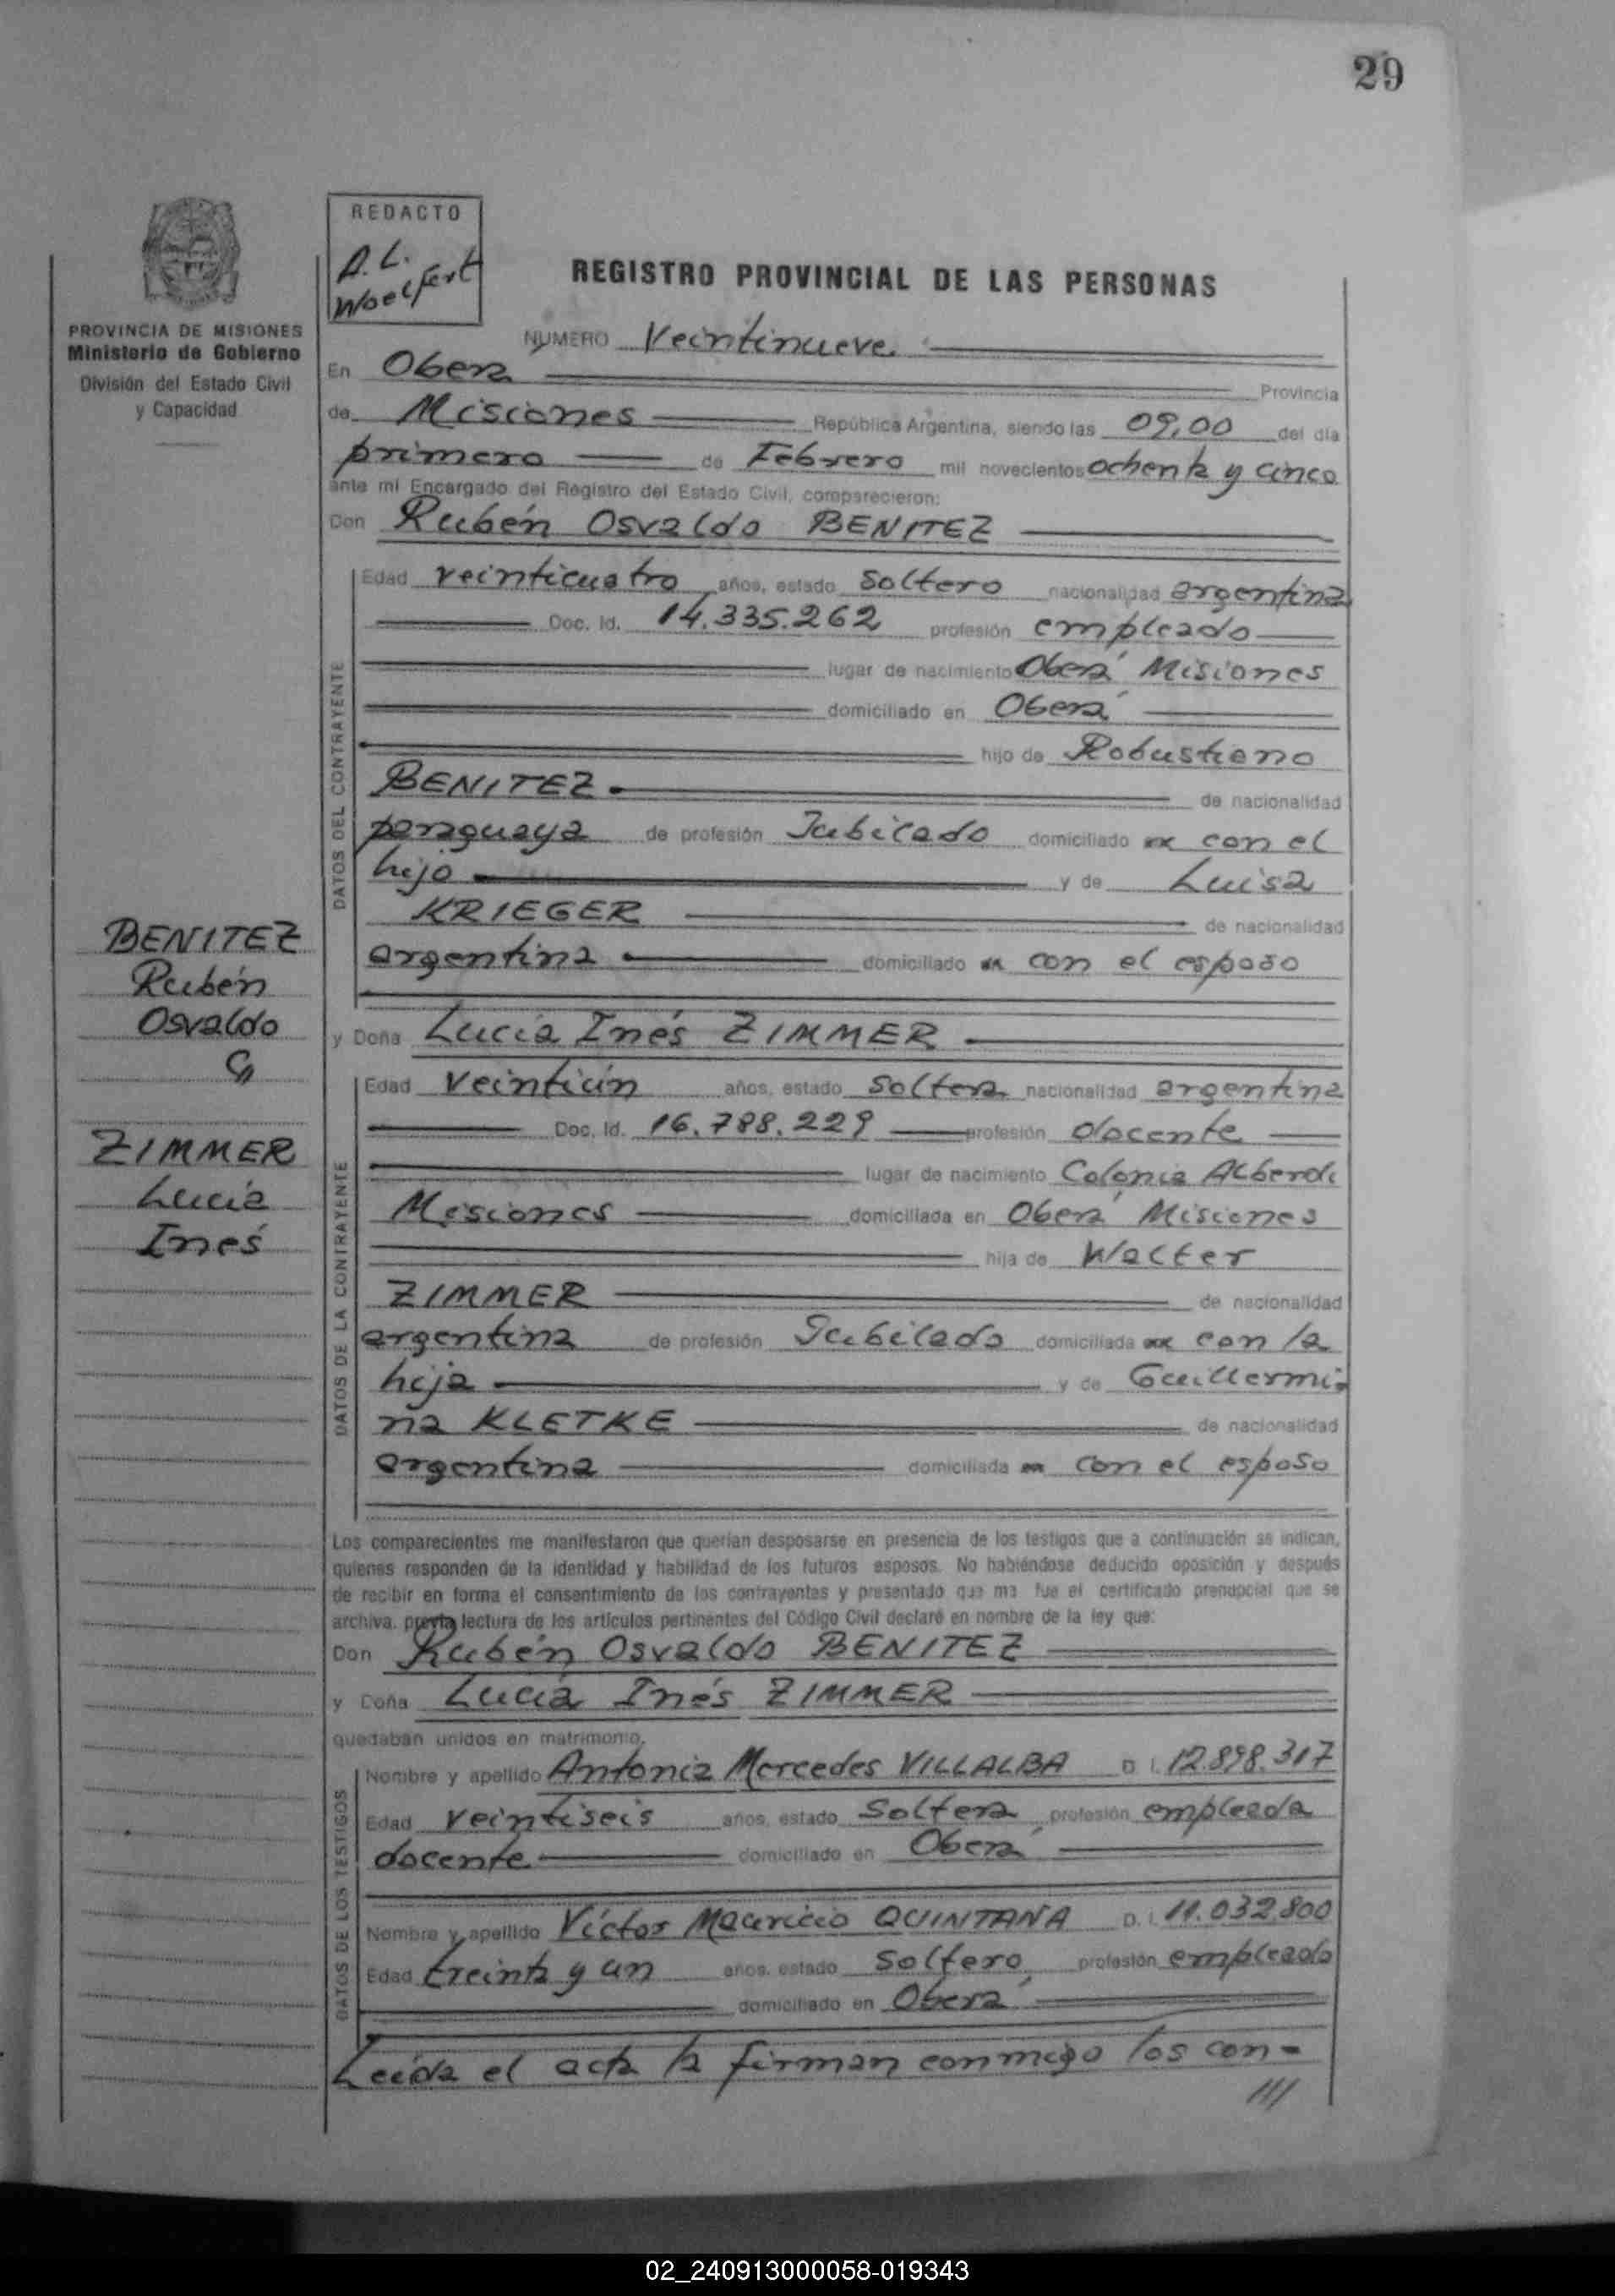 29
REDACTO
A. L.
Woelfert
REGISTRO PROVINCIAL DE LAS PERSONAS
PROVINCIA DE MISIONES
Ministerio de Gobierno
División del Estado Civil
y Capacidad
NUMERO Veintinueve
En Obera Provincia
de Misiones República Argentina, siendo las 09,00 del día
primero de Febrero mil novecientos ochenta y cinco
ante mi Encargado del Registro del Estado Civil, comparecieron:
Don Rubén Osvaldo BENITEZ
DATOS DEL CONTRAYENTE
Edad veinticuatro años, estado Soltero nacionalidad argentina
Doc. Id. 14.335.262 profesión empleado
lugar de nacimiento Oberá Misiones
domiciliado en Oberá
hijo de Robustiano
BENITEZ de nacionalidad
paraguaya de profesión Jubilado domiciliado con el
hijo y de Luisa
KRIEGER de nacionalidad
argentina domiciliado con el esposo
BENITEZ
Rubén
Osvaldo
ZIMMER
Lucía
Inés
y Doña Lucía Inés ZIMMER
DATOS DE LA CONTRAYENTE
Edad Veintiún años, estado Soltera nacionalidad argentina
Doc. Id. 16.788.229 profesión docente
lugar de nacimiento Colonia Alberdi
Misiones domiciliada en Oberá Misiones
hija de Walter
ZIMMER de nacionalidad
argentina de profesión Jubilado domiciliada con la
hija y de Guillermi-
na KLETKE de nacionalidad
argentina domiciliada con el esposo
Los comparecientes me manifestaron que querían desposarse en presencia de los testigos que a continuación se indican,
quienes responden de la identidad y habilidad de los futuros esposos. No habiéndose deducido oposición y después
de recibir en forma el consentimiento de los contrayentes y presentado que me fue el certificado prenupcial que se
archiva, previa lectura de los artículos pertinentes del Código Civil declaré en nombre de la ley que:
Don Rubén Osvaldo BENITEZ
y Doña Lucía Inés ZIMMER
quedaban unidos en matrimonio.
DATOS DE LOS TESTIGOS
Nombre y apellido Antonia Mercedes VILLALBA D. I. 12.898.317
Edad veintiseis años, estado Soltera profesión empleada
docente domiciliado en Oberá
Nombre y apellido Víctor Mauricio QUINTANA D. I. 11.032.800
Edad treinta y un años, estado Soltero profesión empleado
domiciliado en Oberá
Leída el acta la firman conmigo los con-
///
02_240913000058-019343